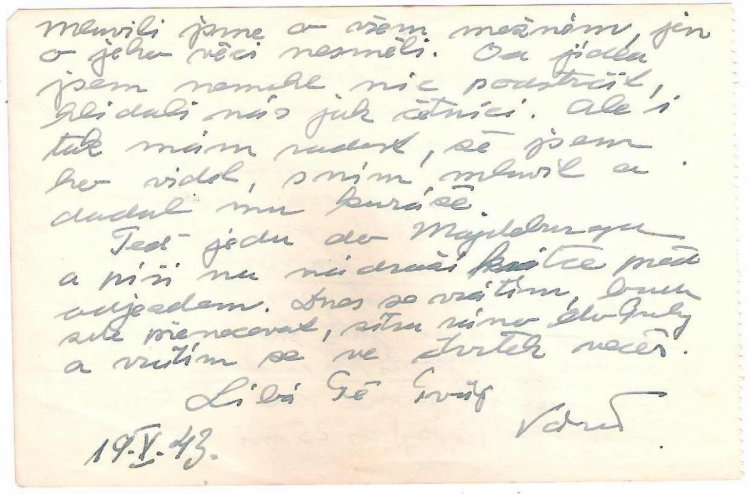 mluvili jsme o všem možném, jen
o jeho věci nesměli. Od jídla
jsem nemohl nic podstrčit,
hlídali nás jak četníci. Ale i
tak mám radost, že jsem
ho viděl, s ním mluvil a
dodal mu kuráže
Teď jedu do Magdeburgu
a píši na nádraží krátce před
odjezdem. Dnes se vrátím, budu
přenocovat, zítra ráno do
a vrátím se ve čtvrtek večer.
Líbá Tě Tvůj
19.V.43.